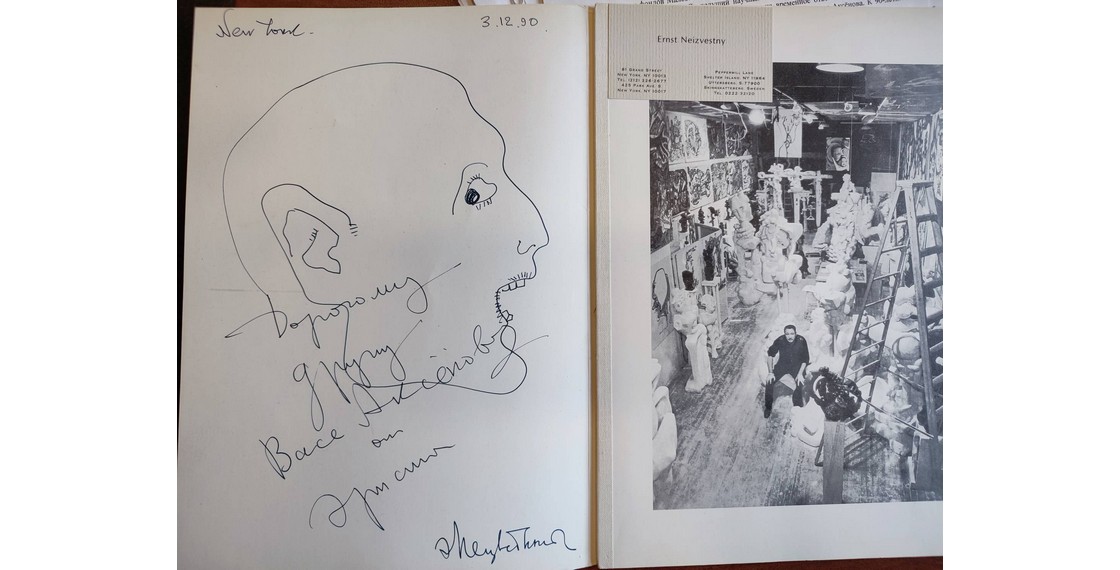 New York.
3.12.90.
Дорогому
другу
Васе Аксёнову
от
Эрнста
Ernst Neizvestny
81 Grand Street
New York, NY 10013
Tel. (212) 226-2677
429 Park Ave. S.
New York, NY 10017
Peppermill Lane
Shelter Island, NY 11964
Uttersberg, S-77900
Skinnskatteberg, Sweden